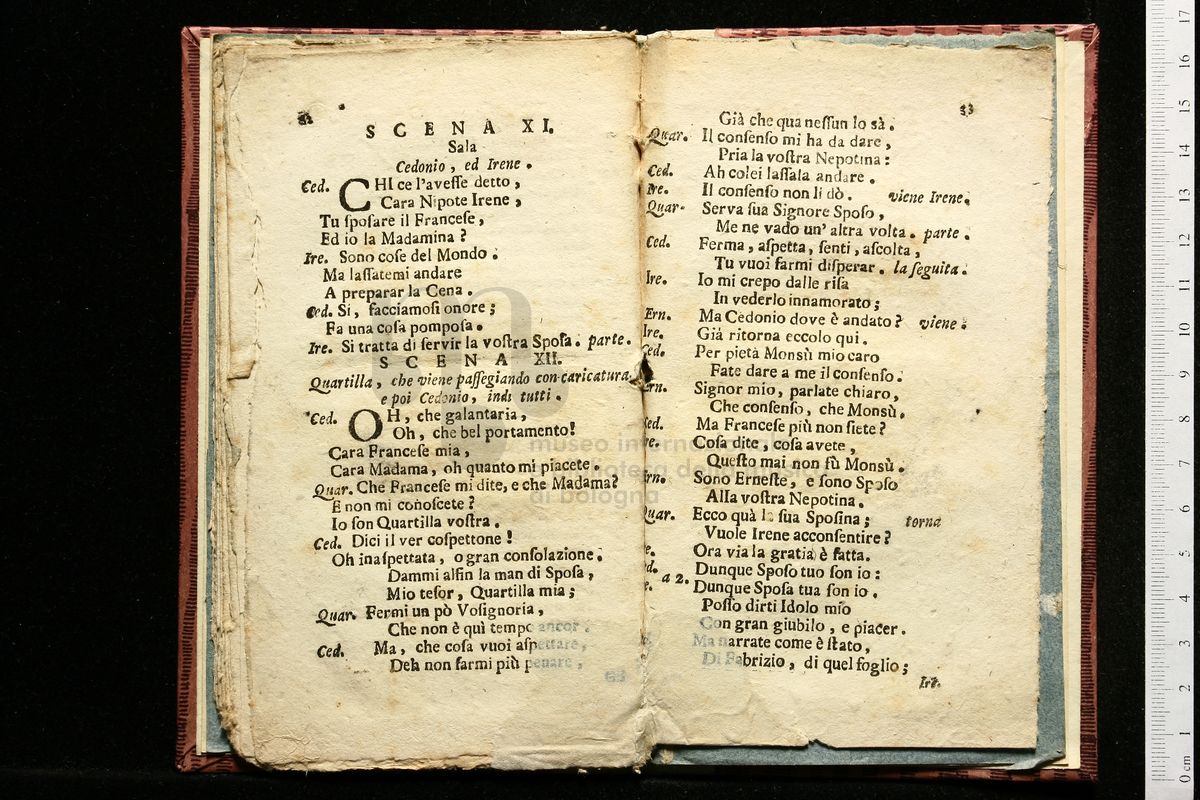 SCENA XI.
Sala
Cedonio, ed Irene.
Ced. CHI ce l'avesse detto,
Cara Nipote Irene,
Tu sposare il Francese,
Ed io la Madamina?
Ire. Sono cose del Mondo.
Ma lassatemi andare
A preparar la Cena.
Ced. Si, facciamosi onore;
Fa una cosa pomposa.
Ire. Si tratta di servir la vostra Sposa. parte.
SCENA XII.
Quartilla, che viene passegiando con caricatura
e poi Cedonio, indi tutti.
Ced. OH, che galantaria,
Oh, che bel portamento!
Cara Francese mia,
Cara Madama, oh quanto mi piacete.
Quar. Che Francese mi dite, e che Madama?
E non mi conoscete?
Io son Quartilla vostra.
Ced. Dici il ver cospettone!
Oh inaspettata, o gran consolazione.
Dammi alfin la man di Sposa,
Mio tesor, Quartilla mia;
Quar. Fermi un pò Vosignoria,
Che non è quì tempo ancor.
Ced. Ma, che cosa vuoi aspettare,
Deh non farmi più penare,
33
Già che qua nessun lo sà.
Quar. Il consenso mi ha da dare,
Pria la vostra Nepotina:
Ced. Ah colei lassala andare.
Ire. Il consenso non li dò. viene Irene.
Quar. Serva sua Signore Sposo,
Me ne vado un' altra volta. parte.
Ced. Ferma, aspetta, senti, ascolta,
Tu vuoi farmi disperar. la seguita.
Ire. Io mi crepo dalle risa
In vederlo innamorato;
Ern. Ma Cedonio dove è andato? viene.
Ire. Già ritorna eccolo qui.
Ced. Per pietà Monsù mio caro
Fate dare a me il consenso.
Ern. Signor mio, parlate chiaro,
Che consenso, che Monsù.
Ced. Ma Francese più non siete?
Ire. Cosa dite, cosa avete,
Questo mai non fù Monsù.
Ern. Sono Erneste, e sono Sposo
Alla vostra Nepotina.
Quar. Ecco quà la sua Sposina; torna
Vuole Irene acconsentire?
Ora via la gratia è fatta.
Dunque Sposo tuo son io:
a 2. Dunque Sposa tua son io.
Posso dirti Idolo mio
Con gran giubilo, e piacer.
Ma narrate come è stato,
Di Fabrizio, di quel foglio;
Ire.
museo internazionale
biblioteca della musica
di bologna